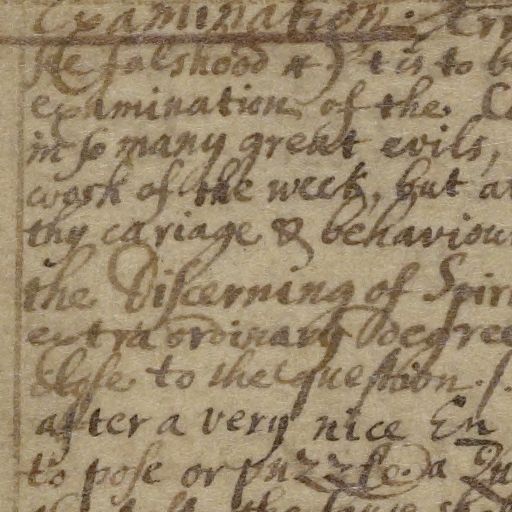 Examination. Err
He falshood & ) t is to b
examination of the C
in so many great evils,
work of the week, but at
thy cariage & behaviour
the Discerning of Spiri
extraordinary degree
close to the question. s.
after a very nice En
to pose or puzzle a Qu